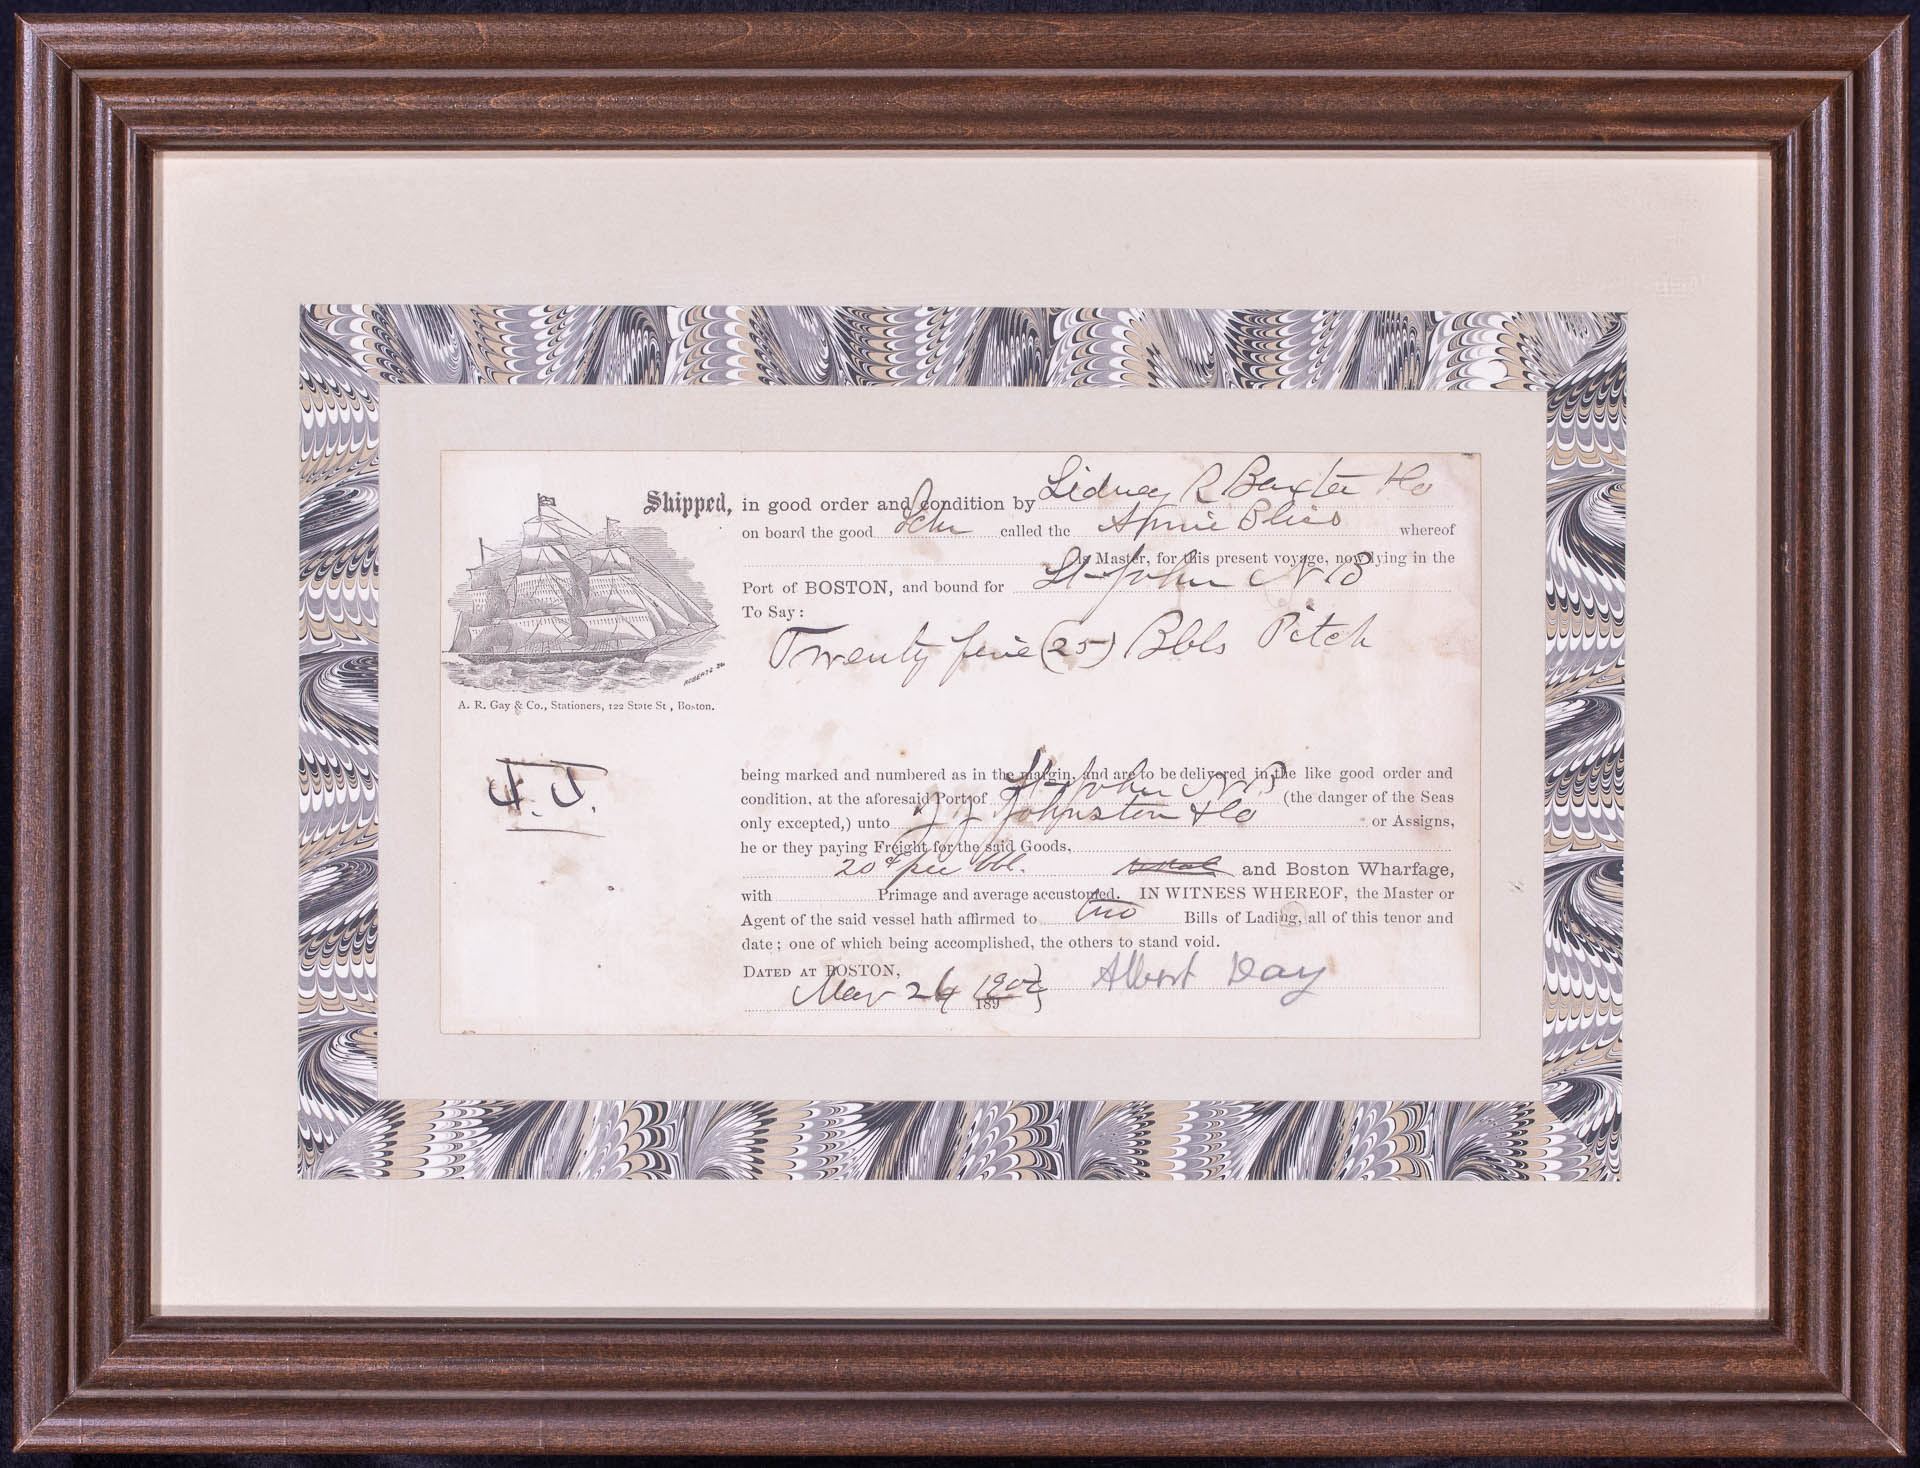 Shipped, in good order and condition by Sidney R Baxter & Co
on board the good Schr called the Annie Bliss whereof
is Master, for this present voyage, now lying in the
Port of BOSTON, and bound for St John N B
To Say:
Twenty five (25) Bbls Pitch
ROBERTS SC
A. R. Gay & Co., Stationers, 122 State St, Boston.
J. J.
being marked and numbered as in the margin, and are to be delivered in the like good order and
condition, at the aforesaid Port of St John N B (the danger of the Seas
only excepted,) unto J J Johnston & Co or Assigns,
he or they paying Freight for the said Goods,
20c per bbl. and Boston Wharfage,
with Primage and average accustomed. IN WITNESS WHEREOF, the Master or
Agent of the said vessel hath affirmed to two Bills of Lading, all of this tenor and
date; one of which being accomplished, the others to stand void.
DATED AT BOSTON, Albert Day
Mar 26 1902
189